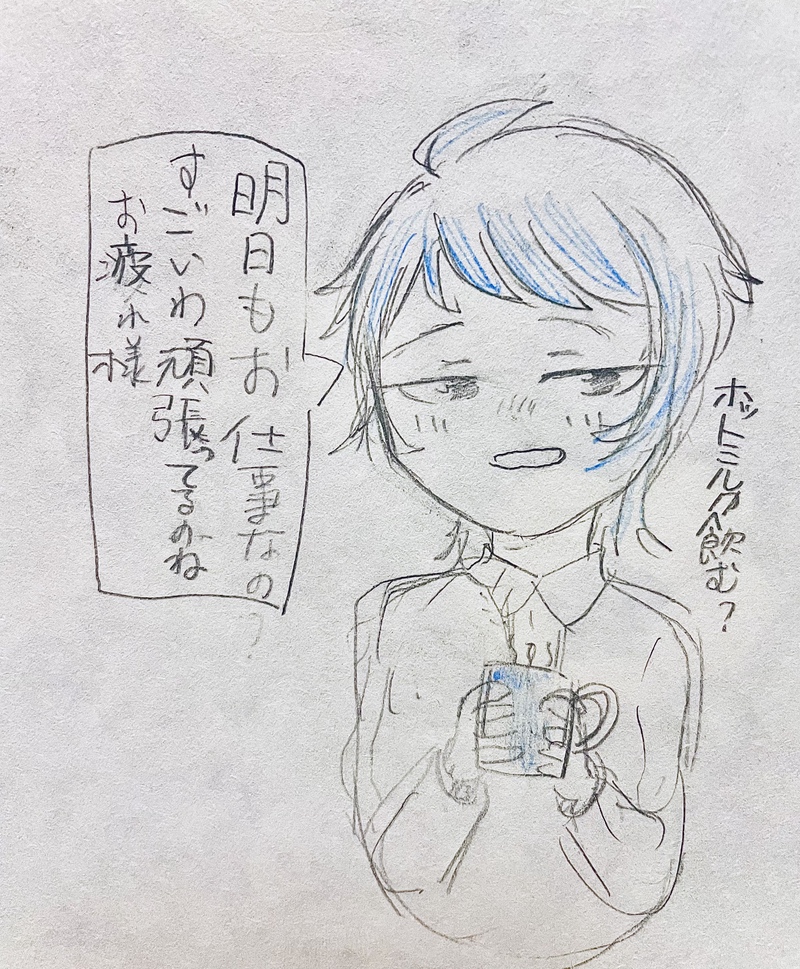 明日もお仕事なの?
すごいわ頑張ってるのね
お疲れ様
ホットミルク飲む?